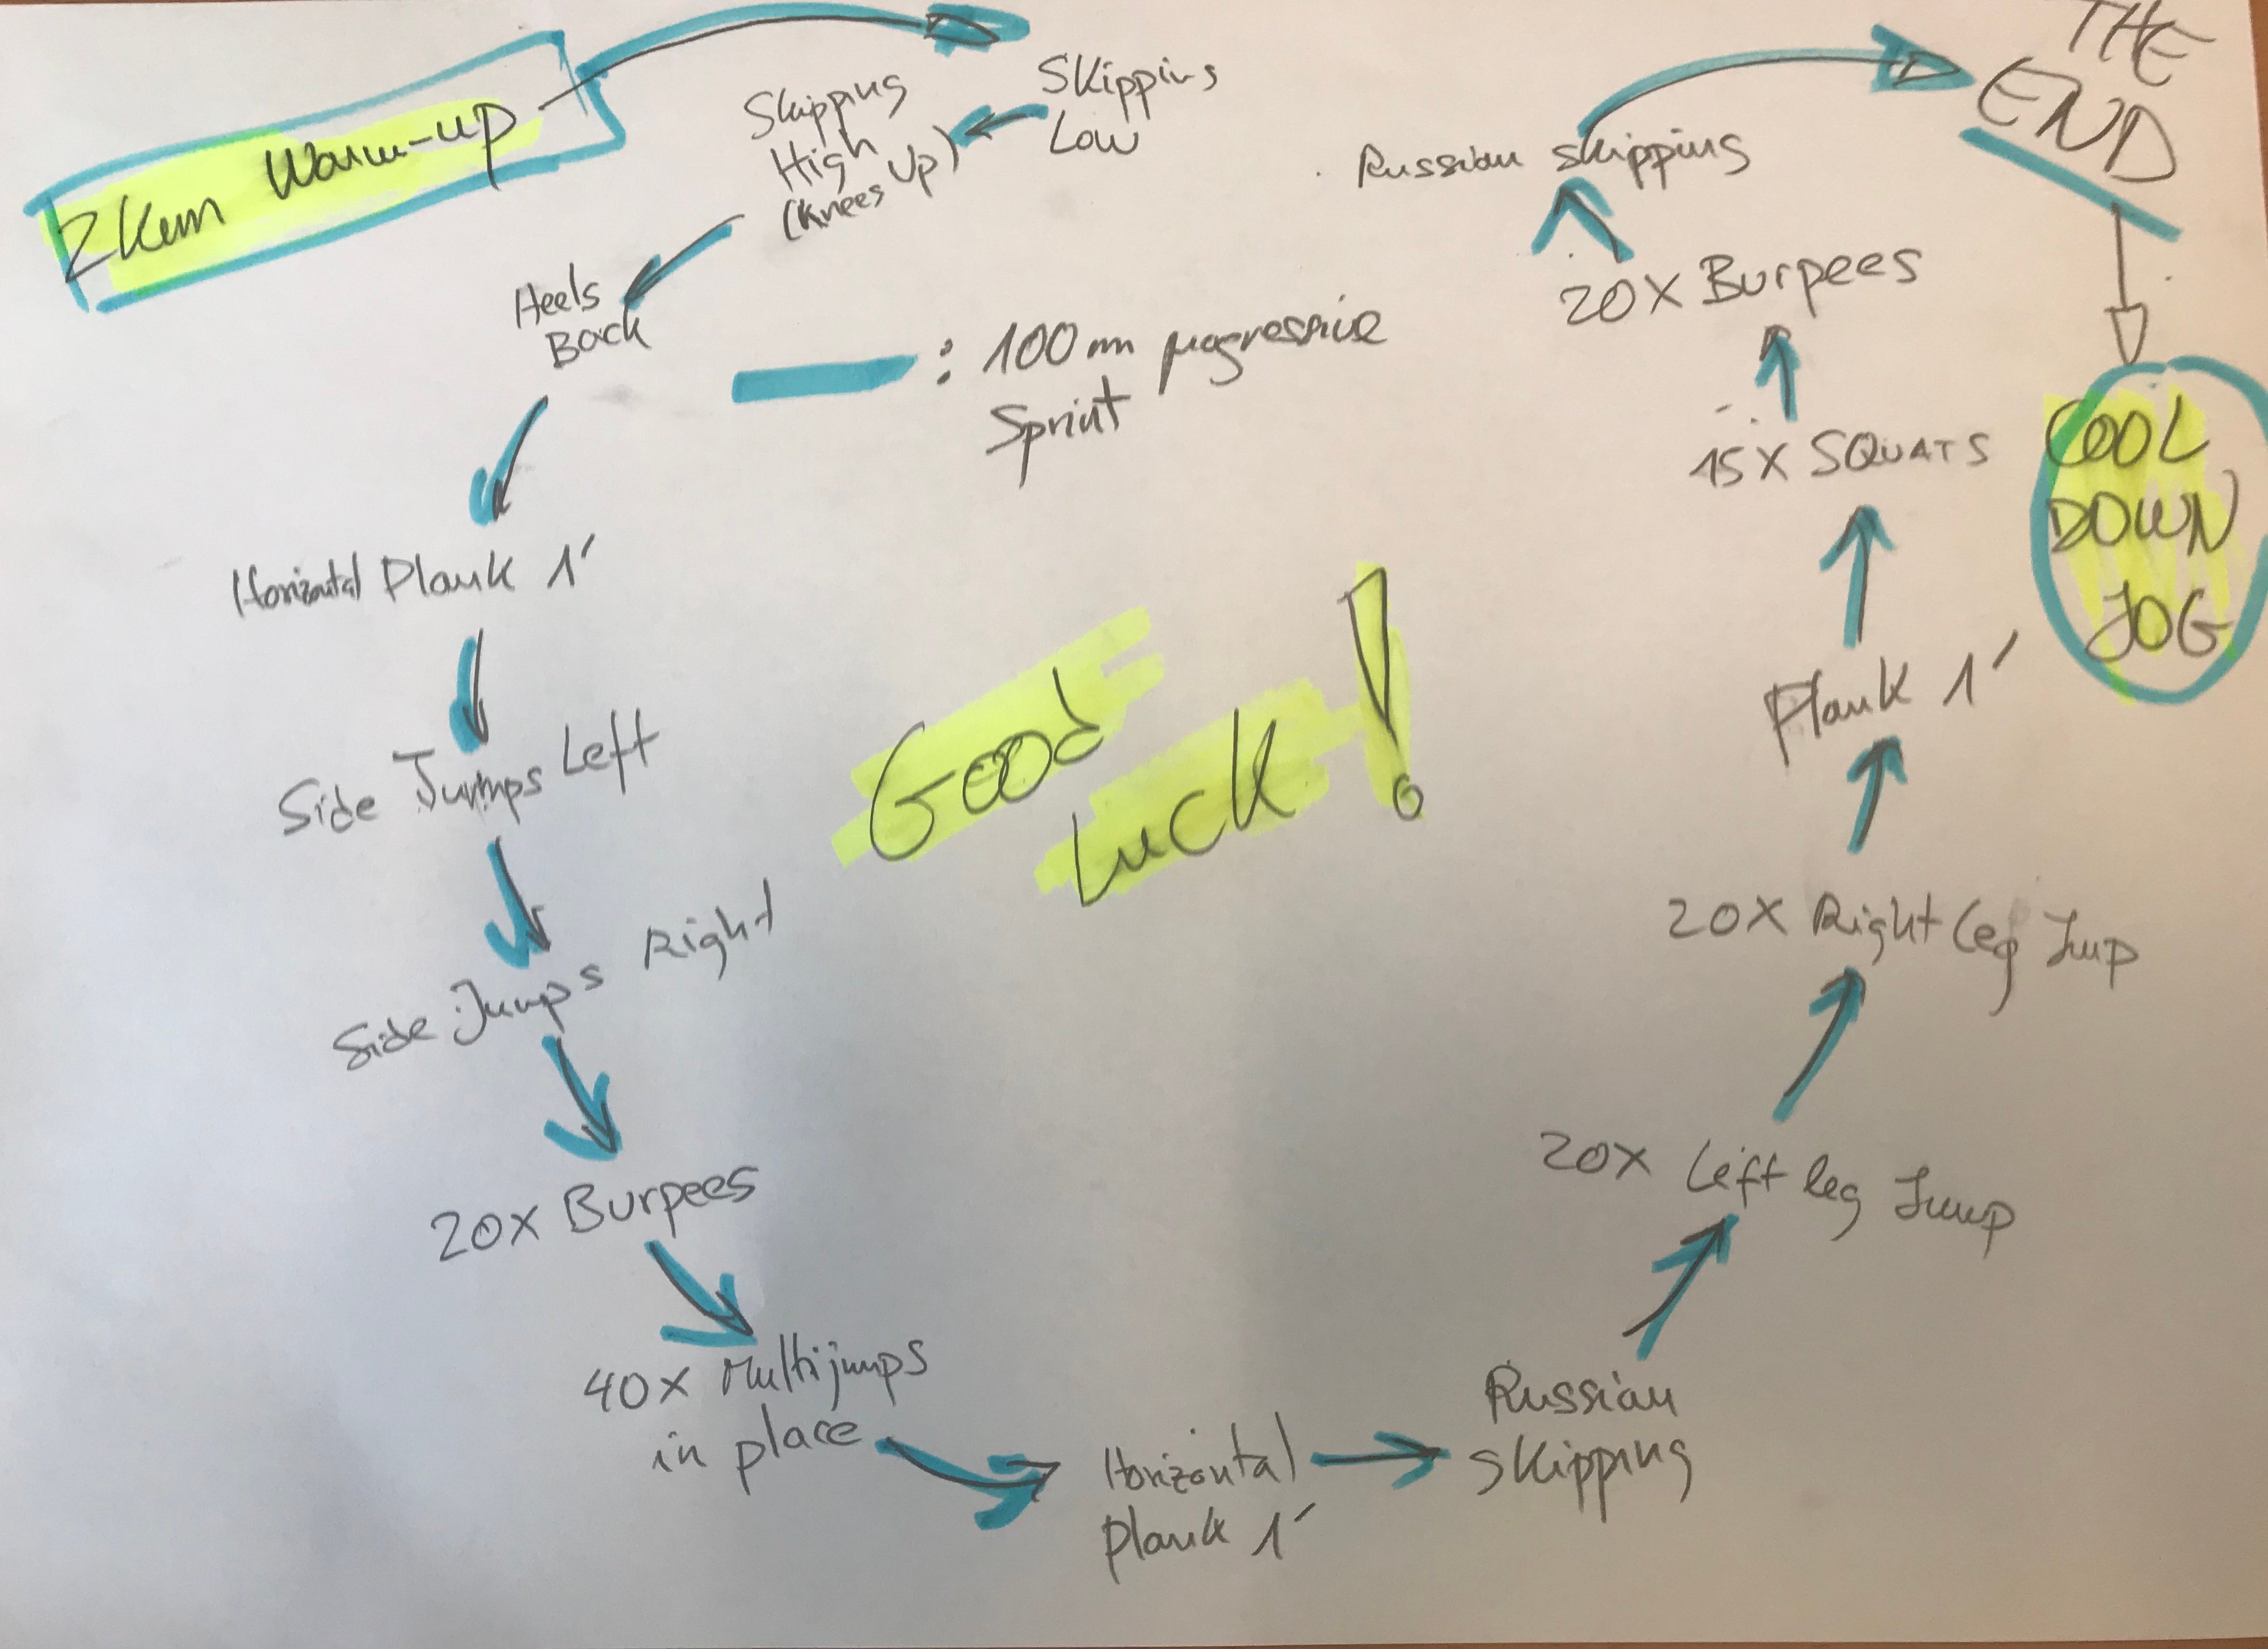 2Km Warm-up
Skipping
Low
Skipping
High
(Knees Up)
Heels
Back
: 100m progressive
Sprint
Horizontal Plank 1'
Side Jumps Left
Side Jumps Right
20X Burpees
40X Multijumps
in place
Horizontal
Plank 1'
Russian
Skipping
20X Left leg Jump
20X Right leg Jump
Plank 1'
15X SQUATS
20X Burpees
Russian skipping
THE
END
COOL
DOWN
JOG
GOOD
LUCK!